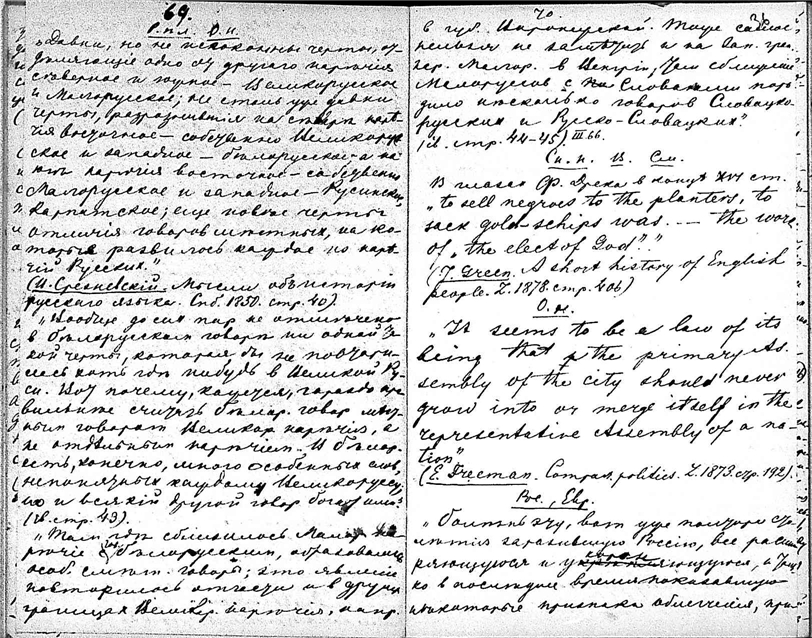 69.
Р. пл. О. н.
„Давни, но не исконны черты, от-
деляющие одно от другого наречия
северное и южное — Великорусское
и Малорусское; не столь уже давни
черты, разрознившия на
восточное — собственно Великорус-
ское и западное — белорусское, а на
восточное — собственно
Малорусское и западное — Русинское,
Карпатское; еще новее черты
отличия говоров местных, на ко-
торые развилось каждое из наре-
чий Русских."
(И. Срезневский. Мысли об истории
русского языка. Спб. 1850. стр. 40)
„Вообще до сих пор не отмечено
в белорусском говоре ни одной
кой черты, которая бы не повтори-
лась хоть где нибудь в Великой Ру-
си. Вот почему, кажется, гораздо пра-
вильнее считать белор. говор мест-
ным говором Великор. наречия, а
не отдельным наречием. В белор.
есть, конечно, много особенных слов,
непонятных каждому Великоруссу,
но и всякий другой говор богат ими"
(ib. стр. 43)
„Там, где сблизилось Малор. на-
речие с белорусским, образовались
особ. смеш. говоры; это явление
повторилось отчасти и в других
границах Великор. наречия, напр.
70
в губ. Воронежской. Тоже самое
нельзя не заметить и на Зап. гра-
Малор. в Венгрии, где сближение
Малоруссов с Словаками поро-
дило несколько говоров Словацко-
русских и Русско-Словацких."
(ib. стр. 44-45) III.66.
Сп. п. В. См.
В глазах Фр. Дрека в конце XVI ст.
„to sell negroes to the planters, to
sack gold-schips was .... the work
of „the elect of God"."
(J. Green. A short history of English
people. L. 1878. стр. 406)
О. н.
„It seems to be a law of its
being that the primary As-
sembly of the city should never
grow into or merge itself in the
representative Assembly of a na-
tion"
(E. Freeman. Compar. politics. L. 1873. стр. 192).
Рос., Евр.
„Болезнь эту, вот уже полтора сто-
летия заразившую Россию, все расши-
ряющуюся и укореняющуюся, и толь-
ко в последнее время показавшую
некоторые признаки облегчения, при-